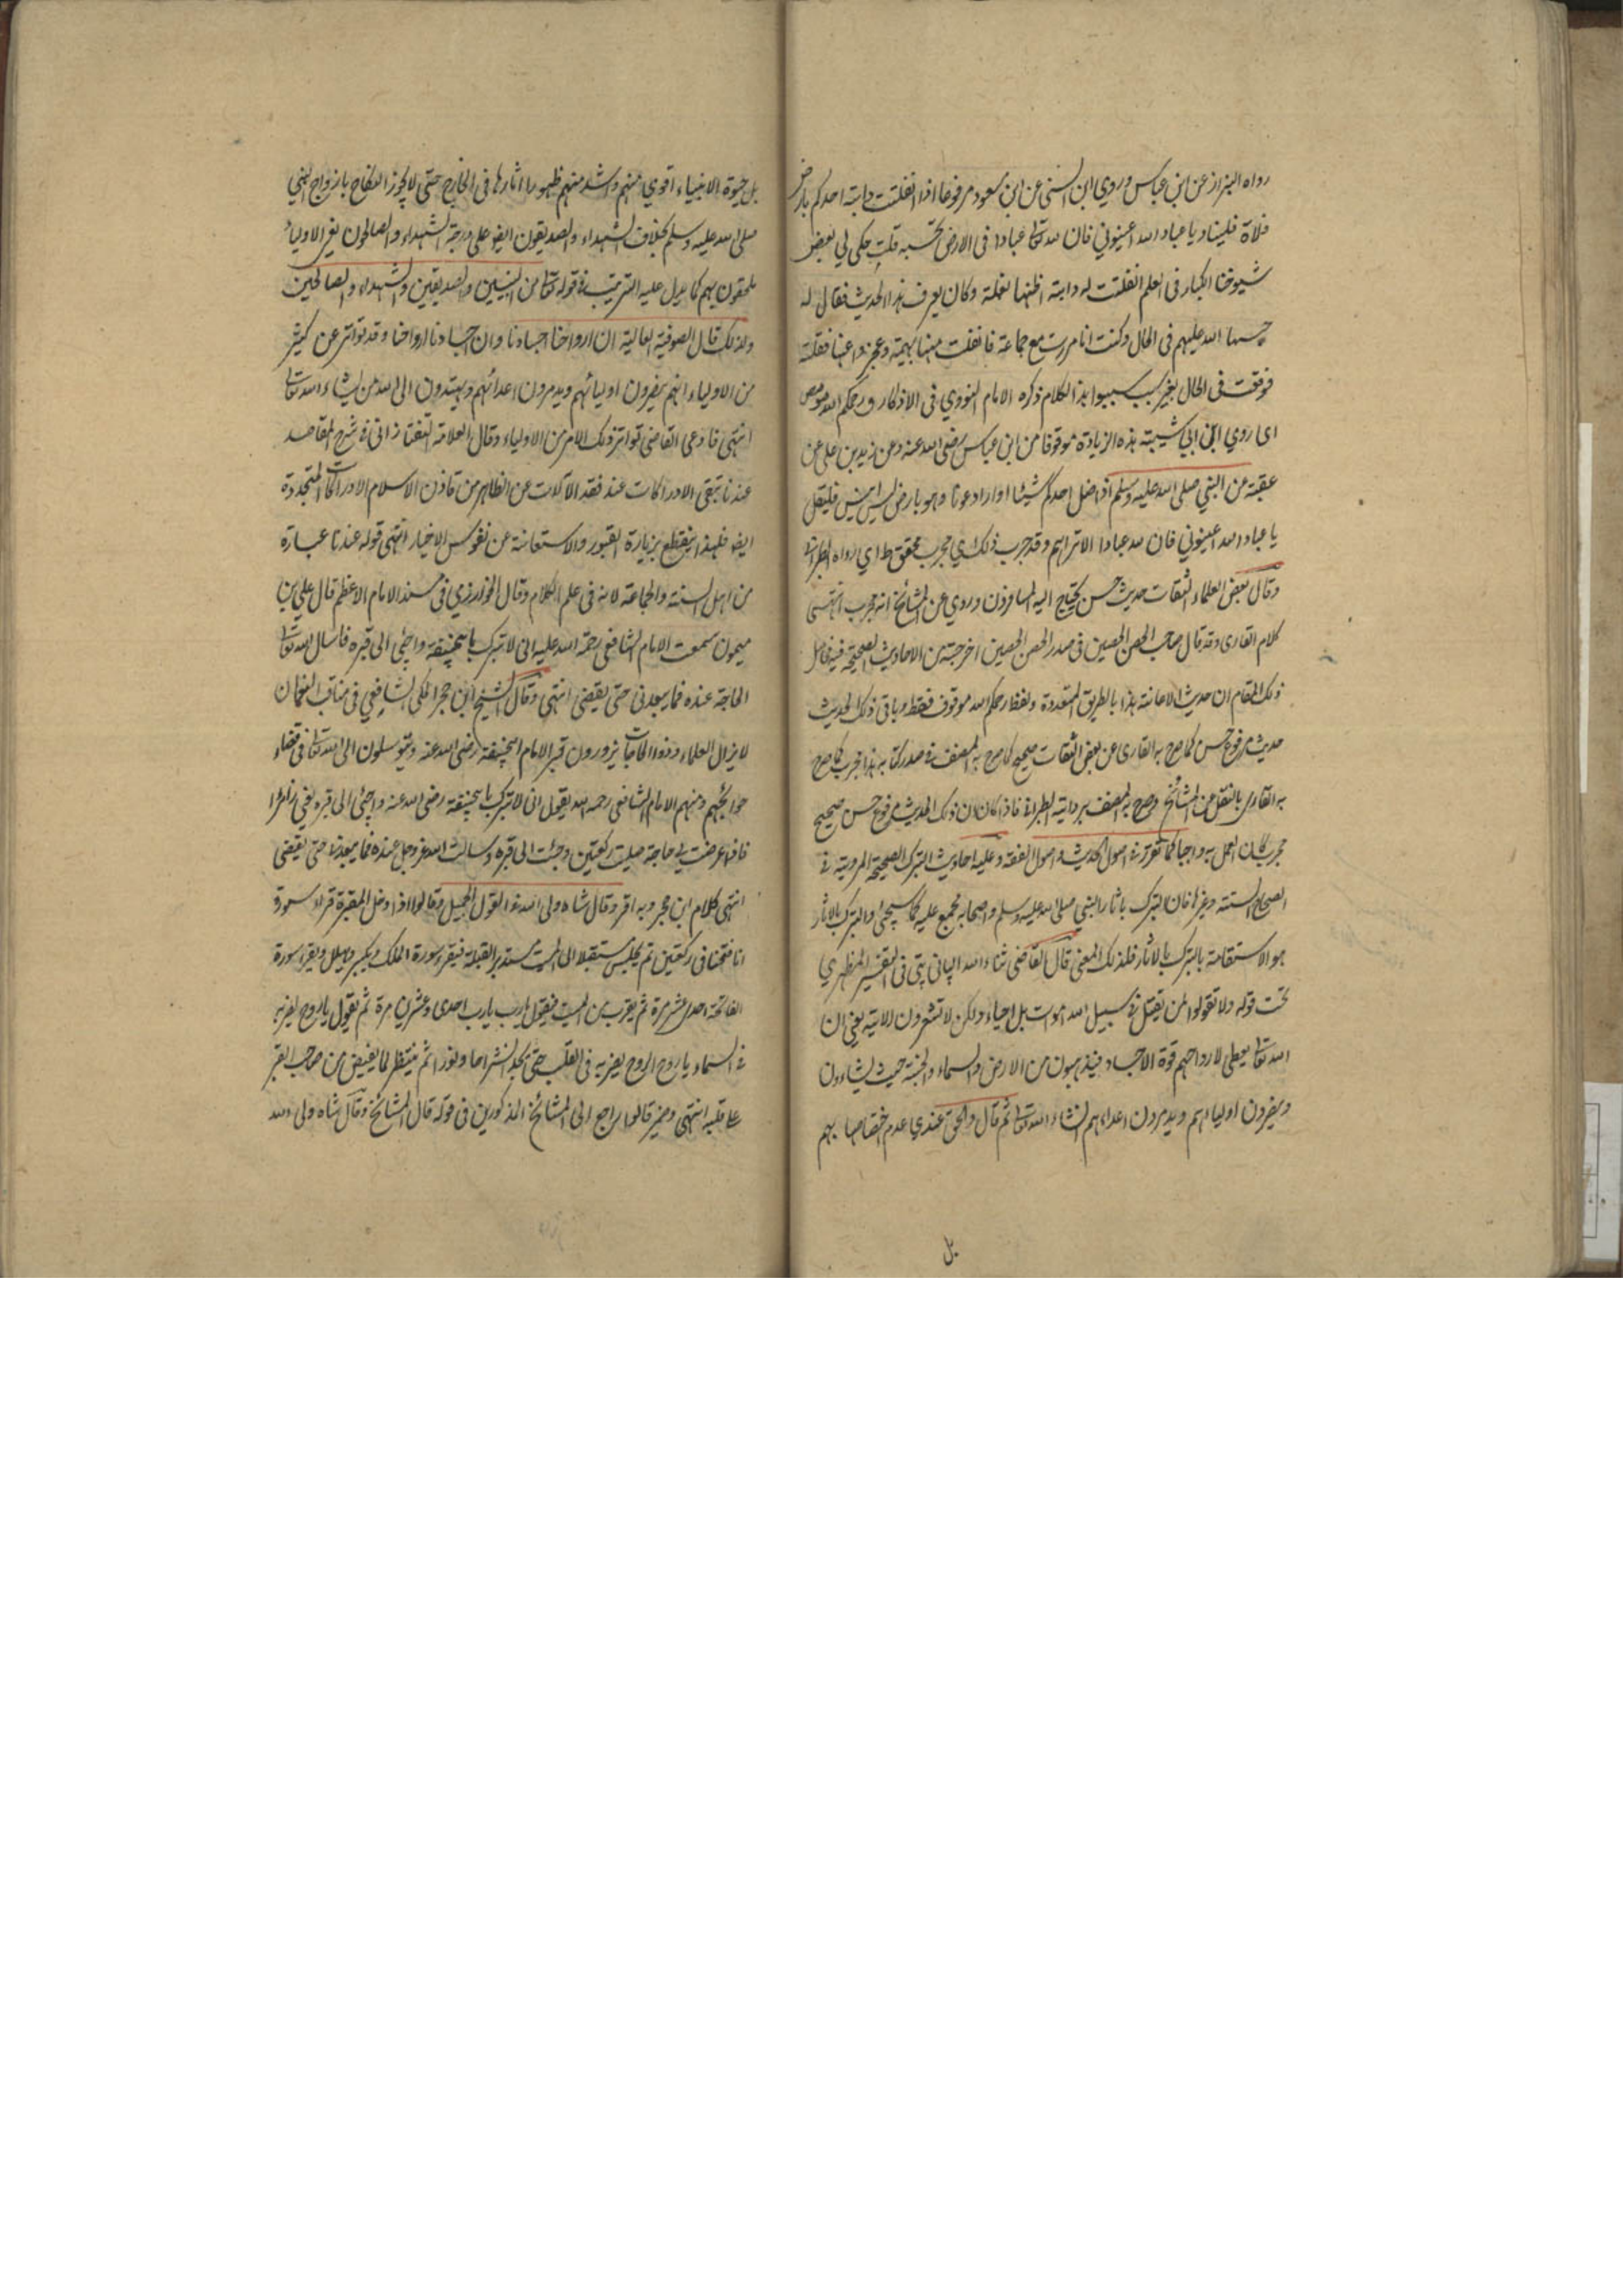 رواه البزاز عن ابن عباس وروي ابن السني عن ابن مسعود مرفوعا اذا انفلتت دابته احدكم بارض
فلاة فليناد يا عباد الله اعينوني فان لله تعالى عبادا فى الارض تحسبه قلت حكى لي بعض
شيوخنا الكبار فى العلم انفلتت له دابته اظنها بغلة وكان يعرف هذا الحديث فقال له
حبسها الله عليهم فى الحال وكنت انا مرت مع جماعة فانفلت منها بهيمة وعجزوا عنها فقلته
فوقفت فى الحال بغير سبب سوا هذا الكلام ذكره الامام النووي فى الاذكار ورحمكم الله مو مص
اى روي ابن ابي شيبته هذه الزيادة موقوفا من ابن عباس رضى الله عنه وعن زيد بن على عن
عقبة عن النبي صلى الله عليه وسلم اذا ضل احدكم شيئا او اراد عونا وهو بارض ليس بها انيس فليقل
يا عباد الله اعينوني فان لله عبادا لا تراهم وقد جرب ذلك اي مجرب محقق ط اي رواه الطبرانى
وقال بعض العلماء الثقات حديث حسن يحتاج اليه المسافرون وروي عن المشائخ انه مجرب انتهى
كلام القارى وقد قال صاحب الحصن الحصين فى صدر الحصن الحصين اخرجته من الاحاديث الصحيحة
ذلك المقام ان حديث الاعانته هذا بالطريق المتعددة ولفظ رحمكم الله موقوف فقط وباقى ذلك الحديث
حديث مرفوع حسن كما صرح به القارى عن بعض الثقات صحيح كما صرح به المصنف فى صدر كتابه هذا مجرب كما صرح
به القارى بالنقل من المشائخ وصرح به المصنف برواية الطبرانى فاذا كان ذلك الحديث مرفوع حسن صحيح
مجرب كان العمل به واجبا كما تقرر فى اصول الحديث واصول الفقه وعليه احاديث التبرك الصحيحة المروية فى
الصحاح الستة وغيرها فان التبرك باثار النبي صلى الله عليه وسلم واصحابه مجمع عليه كما سيجئ والتبرك بالاثار
هو الاستقامة بالتبرك بالاثار فلذلك المعنى قال القاضى ثناء الله الپانى پتى فى التفسير المظهري
تحت قوله ولا تقولوا لمن يقتل فى سبيل الله اموات بل احياء ولكن لا تشعرون الاية يعنى ان
الله تعالى يعطى لارواحهم قوة الاجساد فيذهبون من الارض والسماء والجنة حيث يشاءون
وينصرون اولياءهم ويدمرون اعداءهم انشاء الله تعالى ثم قال والحق عندي عدم اختصاصها بهم
بل
بل حيوة الانبياء اقوي منهم واشد منهم ظهورا اثارها فى الخارج حتى لا يجوز النكاح بازواج النبي
صلى الله عليه وسلم بخلاف الشهداء والصديقون ايضا على درجة الشهداء والصالحون يعنى الاولياء
ملحقون بهم كما يدل عليه الترتيب فى قوله تعالى من النبيين والصديقين والشهداء والصالحين
ولذلك قال الصوفية العالية ان ارواحنا اجسادنا وان اجسادنا ارواحنا وقد تواتر عن كثير
من الاولياء انهم ينصرون اوليائهم ويدمرون اعدائهم ويهتدون الى الله من يشاء الله تعالى
انتهى فادعى القاضى تواتر ذلك الامر من الاولياء وقال العلامة التفتازانى فى شرح المقاصد
عندنا تبقى الادراكات عند فقد الآلات عن الظاهر من قاذن الاسلام الادراكات المتجددة
ايضا فلهذا ينقطع بزيارة القبور والاستعانة عن نفوس الاخيار انتهى قوله عندنا عبارة
من اهل السنة والجماعة لانه فى علم الكلام وقال الخوارزمي فى مسند الامام الاعظم قال على بن
ميمون سمعت الامام الشافعى رحمة الله عليه انى لاتبرك بابيحنيفة واجئى الى قبره فاسال الله تعالى
الحاجة عنده فما يبعدنى حتى يقضى انتهى وقال الشيخ ابن حجر المكى الشافعي فى مناقب النعمان
لا يزال العلماء وذوا الحاجات يزورون قبر الامام ابيحنيفة رضى الله عنه ويتوسلون الى الله تعالى فى قضاء
حوائجهم ومنهم الامام الشافعى رحمه الله يقول انى لاتبرك بابيحنيفة رضى الله عنه واجئى الى قبره يعنى زائرا
فاذا عرضت لي حاجة صليت ركعتين وجئت الى قبره وسالت الله عز وجل عنده فما يبعد عنى حتى يقضى
انتهى كلام ابن حجر وبه اقر وقال شاه ولى الله فى القول الجميل وقالوا اذا دخل المقبرة قراء سورة
انا فتحنا فى ركعتين ثم يجلس مستقبلا الى الميت مستدبر القبلة فيقرء سورة الملك ويكبر ويهلل ويقرء سورة
الفاتحة احدى عشر مرة ثم يقرب من الميت فيقول يا رب يا رب احدى وعشرين مرة ثم يقول يا روح يضربه
فى السماء يا روح الروح يضربه فى القلب حتى يجد انشراحا ونورا ثم ينتظر لما يفيض من صاحب القبر
على قلبه انتهى وضمير قالوا راجع الى المشائخ المذكورين فى قوله قال المشائخ وقال شاه ولى الله